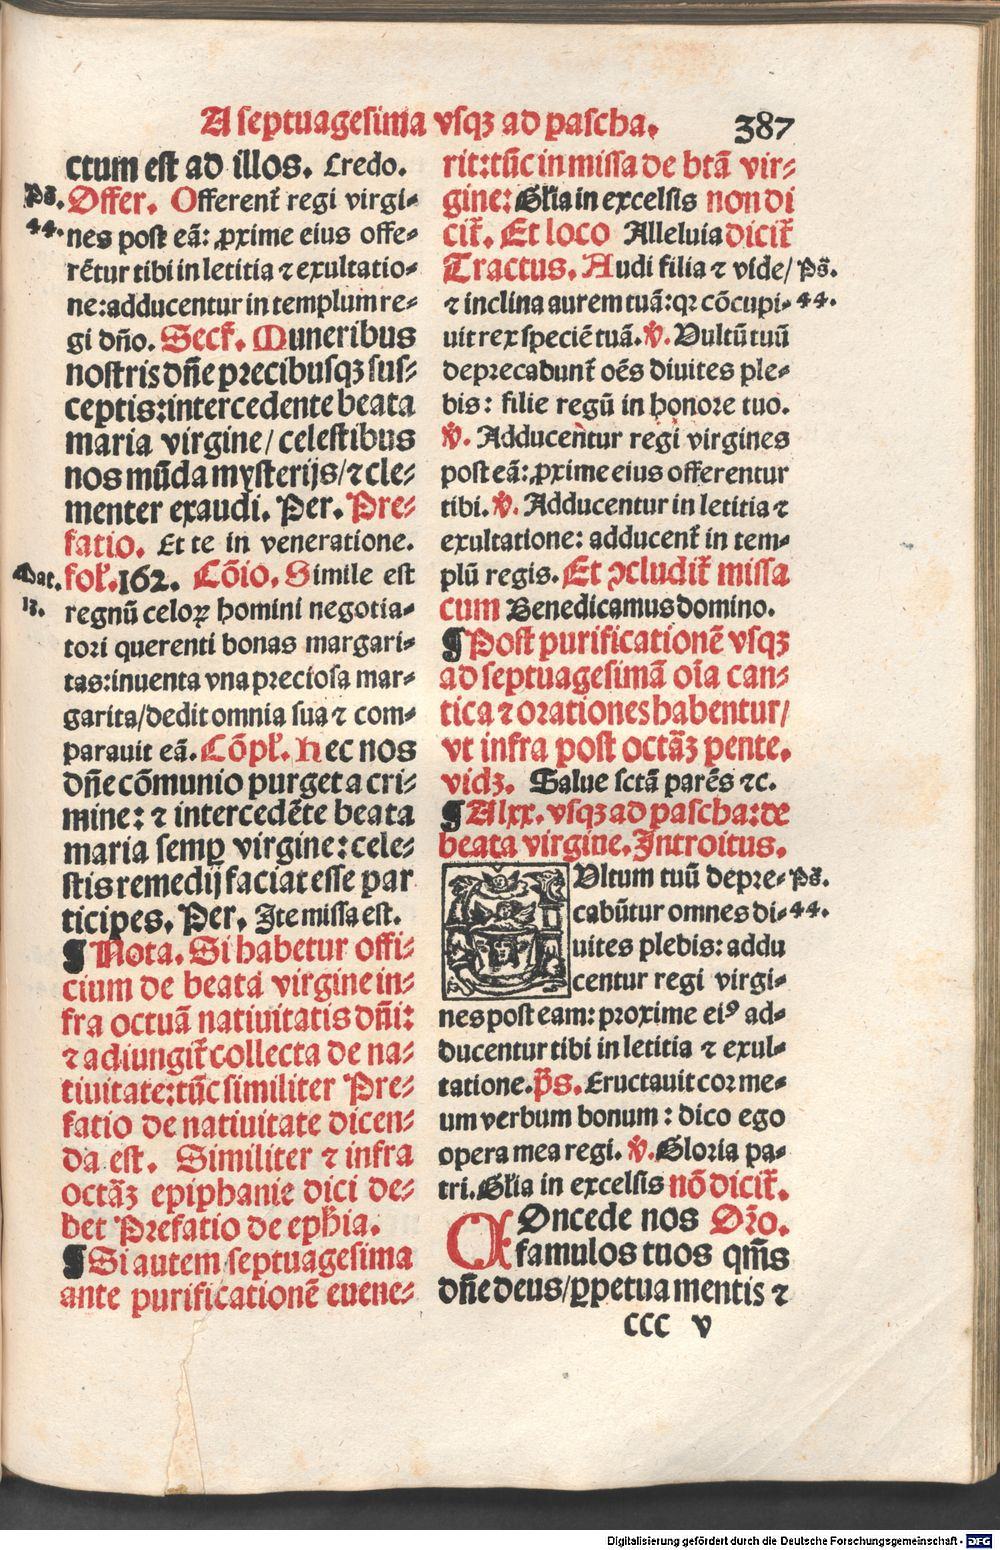 A septuagesima vsqꝫ ad pascha.
387
ctum est ad illos. Credo.
Ps̃.
Offer. Offerent̃ regi virgi-
44.
nes post eã: ꝓxime eius offe-
rẽtur tibi in letitia ⁊ exultatio-
ne: adducentur in templum re-
gi dño. Secr̃. Muneribus
nostris dñe precibusqꝫ sus-
ceptis: intercedente beata
maria virgine/ celestibus
nos mũda mysterijs/ ⁊ cle-
menter exaudi. Per. Pre-
fatio. Et te in veneratione.
Mat.
fol̃. 162. Cõio. Simile est
13.
regnũ celoꝝ homini negotia-
tori querenti bonas margari-
tas: inuenta vna preciosa mar-
garita/ dedit omnia sua ⁊ com-
parauit eã. Cõpl̃. Hec nos
dñe cõmunio purget a cri-
mine: ⁊ intercedẽte beata
maria semꝑ virgine: cele-
stis remedij faciat esse par
ticipes. Per. Ite missa est.
¶ Nota. Si habetur offi-
cium de beata virgine in-
fra octuã natiuitatis dñi:
⁊ adiungit̃ collecta de na-
tiuitate: tũc similiter Pre-
fatio de natiuitate dicen-
da est. Similiter ⁊ infra
octãꝫ epiphanie dici de-
bet Prefatio de eph̃ia.
¶ Si autem septuagesima
ante purificationẽ euene-
rit: tũc in missa de btã vir-
gine: Gl̃ia in excelsis non di
cit̃. Et loco Alleluia dicit̃
Tractus. Audi filia ⁊ vide/
Ps̃.
⁊ inclina aurem tuã: qꝛ cõcupi-
44.
uit rex speciẽ tuã. ℣. Vultũ tuũ
deprecabunt̃ oẽs diuites ple-
bis: filie regũ in honore tuo.
℣. Adducentur regi virgines
post eã: ꝓxime eius offerentur
tibi. ℣. Adducentur in letitia ⁊
exultatione: adducent̃ in tem-
plũ regis. Et ↄcludit̃ missa
cum Benedicamus domino.
¶ Post purificationẽ vsqꝫ
ad septuagesimã oĩa can-
tica ⁊ orationes habentur/
vt infra post octãꝫ pente.
vidꝫ. Salue sctã parẽs ⁊c.
¶ A lxx. vsqꝫ ad pascha: de
beata virgine. Introitus.
Vltum tuũ depre-
Ps̃.
cabũtur omnes di-
44.
uites plebis: addu
centur regi virgi-
nes post eam: proxime eiꝰ ad-
ducentur tibi in letitia ⁊ exul-
tatione. p̃s. Eructauit cor me-
um verbum bonum: dico ego
opera mea regi. ℣. Gloria pa-
tri. Gl̃ia in excelsis nõ dicit̃.
COncede nos Oĩo.
famulos tuos qm̃s
dñe deus/ ꝑpetua mentis ⁊
CCC v
Digitalisierung gefördert durch die Deutsche Forschungsgemeinschaft - DFG